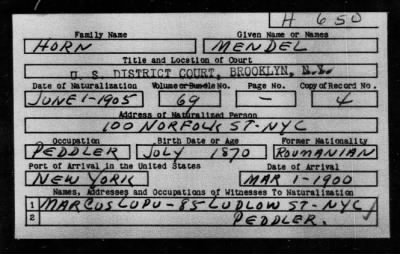 H 650
Family Name Given Name or Names
HORN MENDEL
Title and Location of Court
U. S. DISTRICT COURT, BROOKLYN, N.Y.
Date of Naturalization Volume or Bundle No. Page No. Copy of Record No.
JUNE 1-1905 69 - 4
Address of Naturalized Person
100 NORFOLK ST-NYC
Occupation Birth Date or Age Former Nationality
PEDDLER JULY 1870 ROUMANIAN
Port of Arrival in the United States Date of Arrival
NEW YORK MAR 1-1900
Names, Addresses and Occupations of Witnesses To Naturalization
1 MARCUS LUPU-85 LUDLOW ST-NYC
2 PEDDLER.